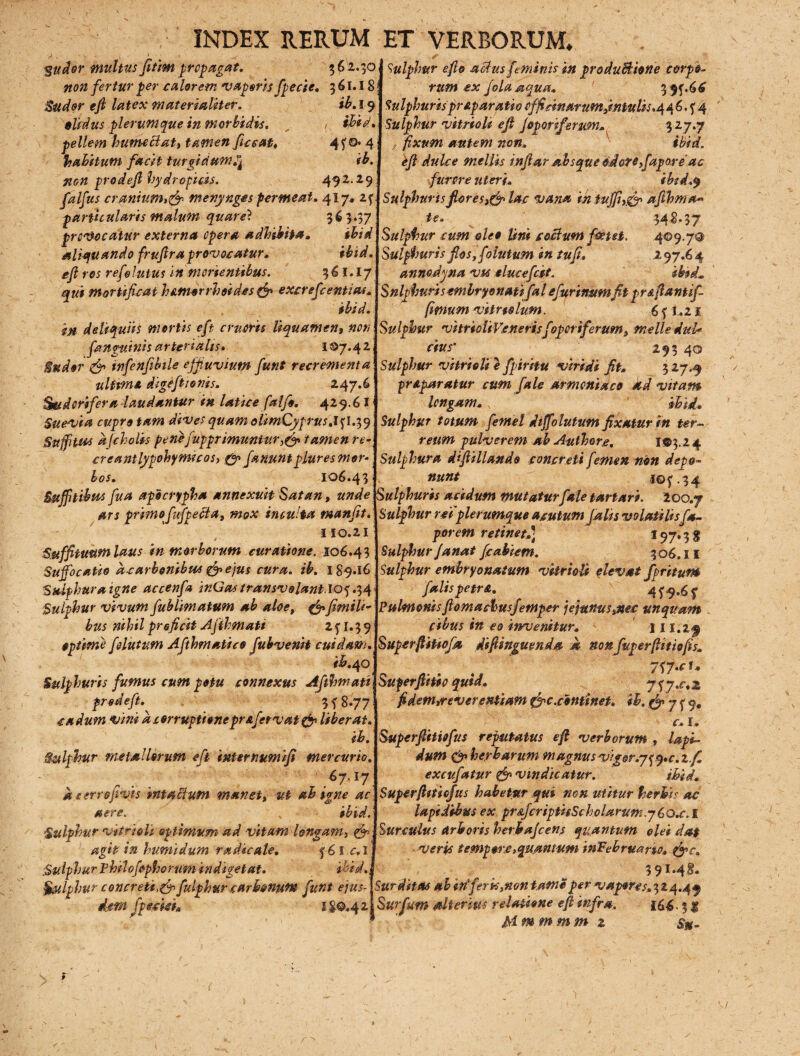 INDEX RERUM ET VERBORUM.
Sudor multus sitim propagat. 362.30
non fertur per calorem vaporis specie. 361.18
Sudor est latex materialiter. ib.19
olidus plerumque in morbidis. ibid.
pellem humectat, tamen siccat. 450.4
habitum facit turgidum. ib.
non prodest hydropicis. 492.29
falsus cranium, & menynges permeat. 417.25
particularis malum quare? 363.37
provocatur externa opera adhibita. ibid
aliquando frustra provocatur. ibid.
est ros resolutus in morientibus. 361.17
qui mortificat hæmorrhoides & excrescentias.
ibid.
in deliquiis mortis est cruoris liquamen, non
sanguinis arterialis. 107.42
Sudor & insensibile effluvium sunt recrementa
ultimæ digestionis. 247.6
Sudorifera laudantur in latice falso. 429.61
Suevia cupro tam dives quam olim Cyprus.151.39
Suffitus a scholis pene supprimuntur, & tamen re-
creant lypohymicos, & sanunt plures mor-
bos. 106.43
Suffitibus sua apocrypha annexuit Satan, unde
ars primo suspecta, mox inculta mansit.
110.21
Suffituum laus in morborum curatione. 106.43
Suffocatio a carbonibus & ejus cura. ib. 189.16
Sulphura igne accensa in Gas transvolant.105.34
Sulphur vivum sublimatum ab aloe, & simili-
bus nihil proficit Asthmati 251.39
optime solutum Asthmatico subvenit cuidam.
ib.40
Sulphuris fumus cum potu connexus Asthmati
prodest. 358.77
cadum vini a corruptione præservat & liberat.
ib.
Sulphur metallorum est internum nisi mercurio.
67.17
a corrosivis intactum manet, ut ab igne ac
aere. ibid.
Sulphur vitrioli optimum ad vitam longam, &
agit in humidum radicale. 561 c.1
Sulphur Philosophorum indigetat. ibid.
Sulphur concreti, & sulphur carbonum sunt ejus-
dem speciei. 180.42
Sulphur esto actus seminis in productione corpo-
rum ex sola aqua. 395.66
Sulphuris præparatio officinarum, inutilis.446.54
Sulphur vitrioli est soporiferum. 327.7
fixum autem non. ibid.
est dulce mellis instar absque odore, sapore ac
furore uteri. ibid.9
Sulphuris flores, & lac vana in tussi, & asthma-
te. 348.37
Sulphur cum oleo lini coctum fœtet. 409.70
Sulphuris flos, solutum in tusi. 297.64
annodyna vis elucescit. ibid.
Sulphuris embryonati sal esurinum fit præstantis-
simum vitriolum. 651.21
Sulphur vitrioli Veneris soporiferum, melle dul-
cius 293 40
Sulphur vitrioli e spiritu viridi fit. 327.9
præparatur cum sale armoniaco ad vitam
longam. ibid.
Sulphur totum semel dissolutum fixatur in ter-
reum pulverem ab Authore. 103.24
Sulphura distillando concreti semen non depo-
nunt 105.34
Sulphuris acidum mutatur sale tartari. 200.7
Sulphur rei plerumque acutum salis volatilis sa-
porem retinet. 197.38
Sulphur sanat scabiem. 306.11
Sulphur embryonatum vitrioli elevat spritum
salis petræ. 459.65
Pulmonis stomachus semper jejunus, nec unquam
cibus in eo invenitur. 111.29
Superstitiosa distinguenda a non superstitiosis.
757.c 1.
Superstitio quid. 757.c.2
fidem, reverentiam &c. continet. ib. & 759.
c. 1.
Superstitiosus reputatus est verborum, lapi-
dum & herbarum magnus vigor.759.c.2.s.
excusatur & vindicatur. ibid.
Superstitiosus habetur qui non utitur herbis ac
lapidibus ex præscriptis Scholarum.760.c.1
Surculus arboris herbascens quantum olei dat
veris tempore, quantum in Februario. &c.
391.48.
Surditas ab inferis, non tame per vapores.324.49
Sursum alterius relatione est infra. 166.38
M m m m m 2 Su-